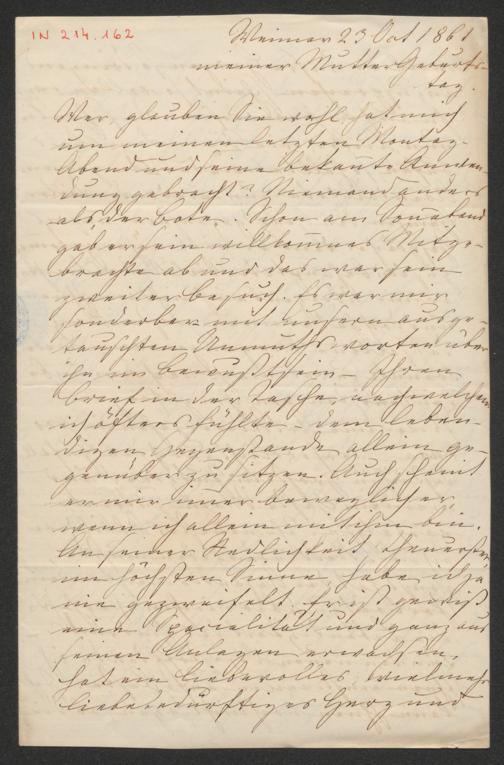 IN 214.162
Weimar 23 Oct 1861
meiner Mutter Geburts-
tag.
Wer, glauben Sie wohl hat mich
um meinen letzten Montag-
Abend und seine bekannte Anwen-
dung gebracht? Niemand anders
als der Bote. Schon am Sonnabend
gab er sein willkommnes Mitge-
brachte ab und das war sein
zweiter Besuch. Es war mir
sonderbar mit unsern ausge-
tauschten Unmuthsworten über
ihn im Bewußtsein – Ihren
Brief in der Tasche, nach welchem
ich öfters fühlte – dem leben-
digen Gegenstande allein ge-
genüber zu sitzen. Auch scheint
er mir immer beweglicher
wenn ich allein mit ihm bin.
An seiner Redlichkeit, theuerste
im höchsten Sinne, habe ich ja
nie gezweifelt. Er ist gewiß
eine Specialität und ganz aus
seinen Anlagen erwachsen,
hat ein liebevolles, vielmehr
liebebedürftiges Herz und